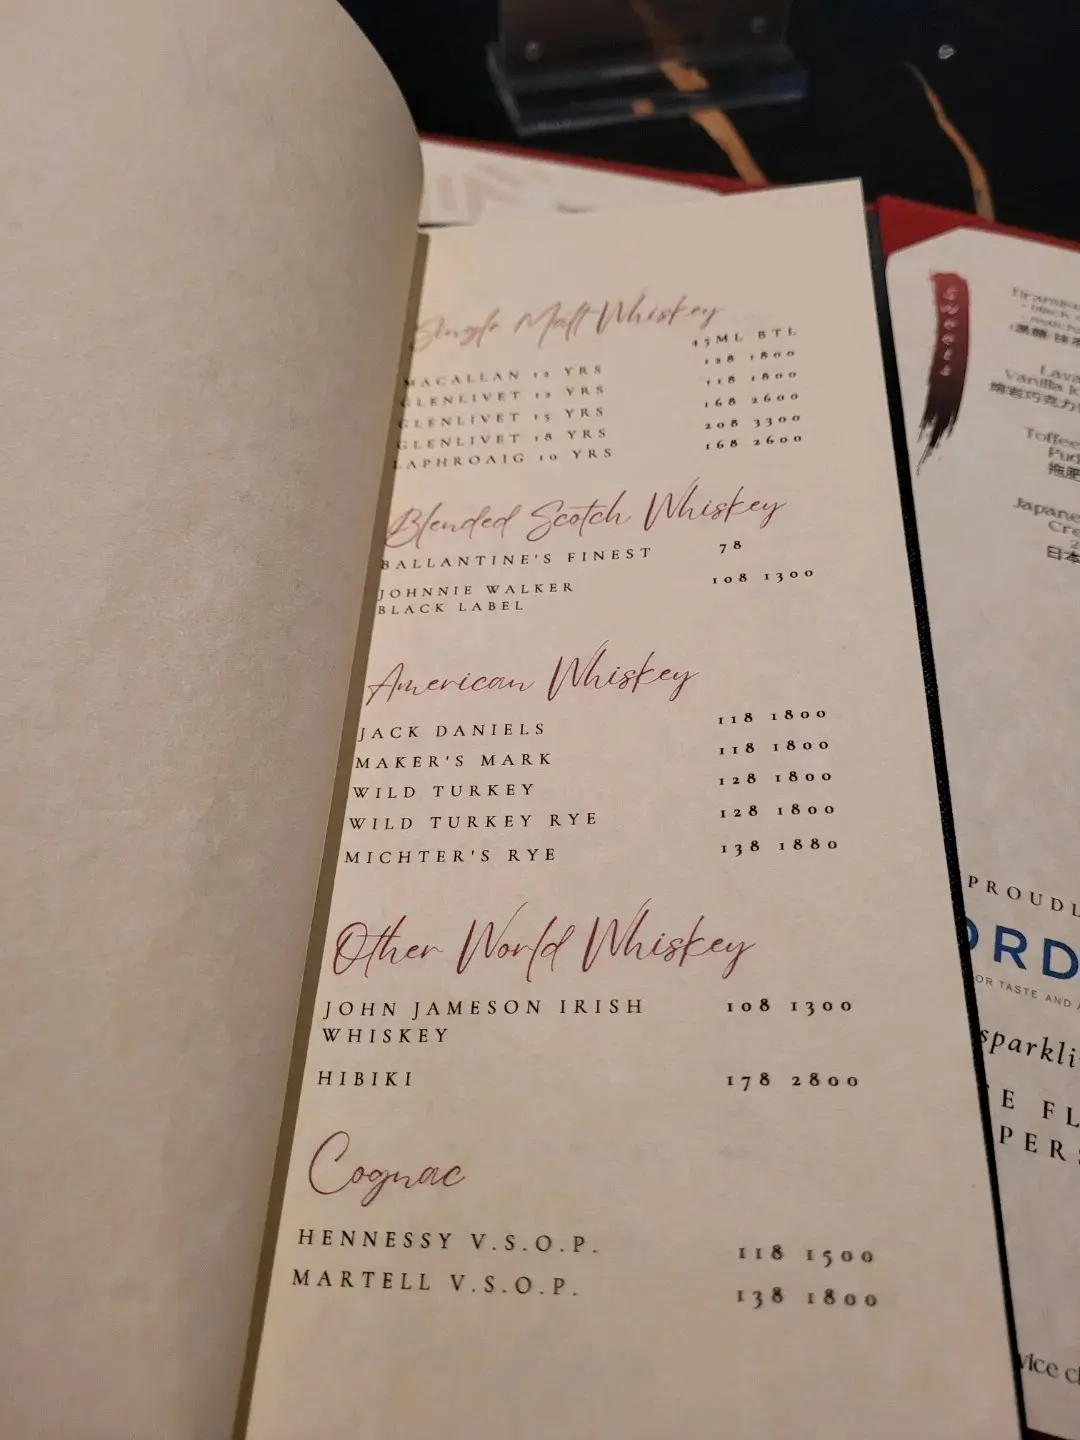 Single Malt Whiskey
45ML BTL
MACALLAN 12 YRS 128 1800
GLENLIVET 12 YRS 118 1800
GLENLIVET 15 YRS 168 2600
GLENLIVET 18 YRS 208 3300
LAPHROAIG 10 YRS 168 2600
Blended Scotch Whiskey
BALLANTINE'S FINEST 78
JOHNNIE WALKER 108 1300
BLACK LABEL
American Whiskey
JACK DANIELS 118 1800
MAKER'S MARK 118 1800
WILD TURKEY 128 1800
WILD TURKEY RYE 128 1800
MICHTER'S RYE 138 1880
Other World Whiskey
JOHN JAMESON IRISH 108 1300
WHISKEY
HIBIKI 178 2800
Cognac
HENNESSY V.S.O.P. 118 1500
MARTELL V.S.O.P. 138 1800
Sweets
Lava
Vanilla
熔岩巧克力
Toffee
日本
PROUDL
ORD
OR TASTE AND
sparkli
E FL
PERS